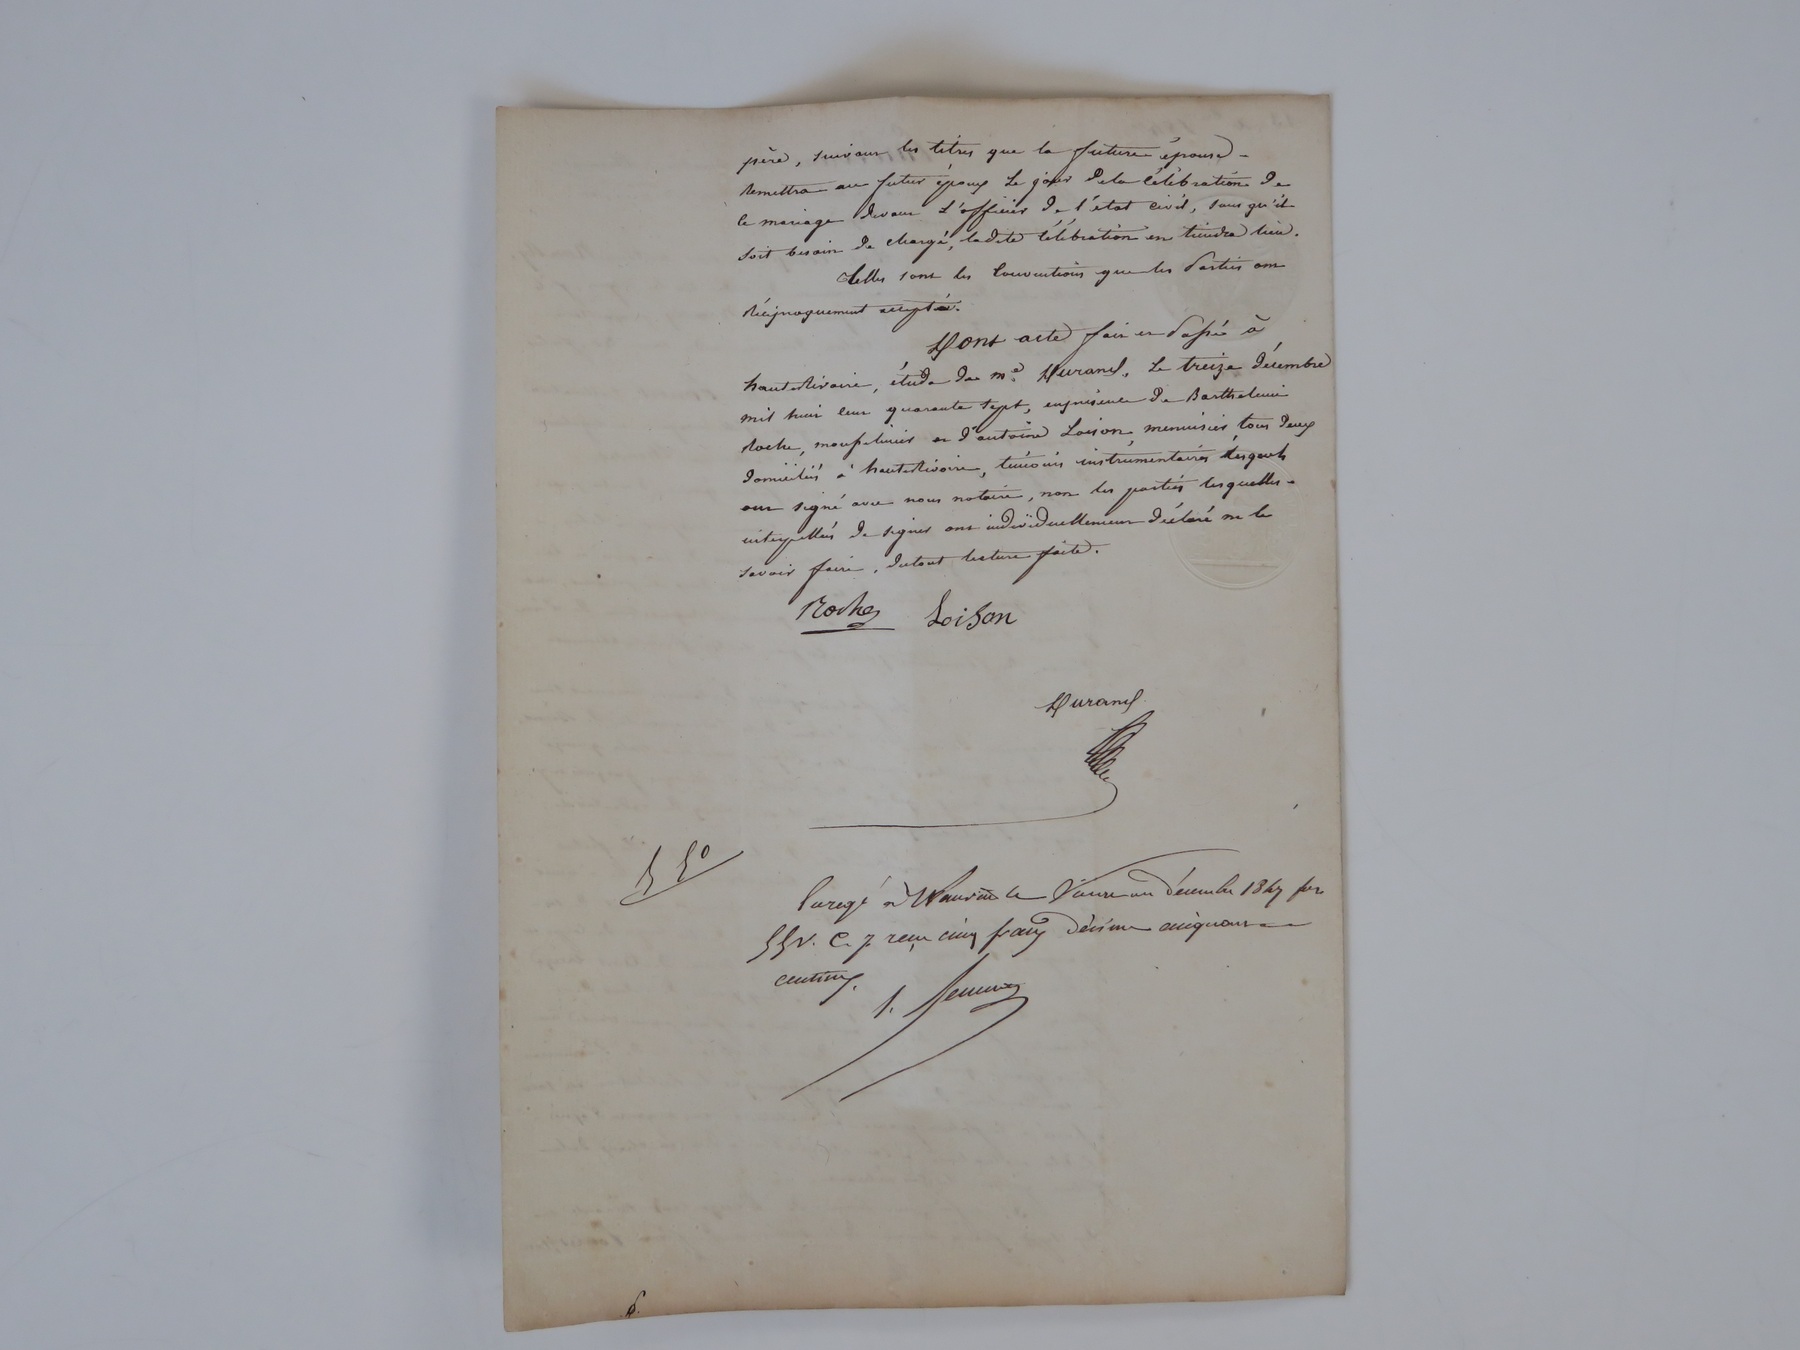 père, suivant les titres que la future épouse
remettra au futur époux le jour de la célébration de
ce mariage devant l'officier de l'état civil, sans qu'il
soit besoin de charge, ladite célébration en tiendra lieu.
Telles sont les Conventions que les Parties ont
réciproquement acceptées.
Dont acte fait et Passé à
hauterivoire, étude de me. Durand, Le treize décembre
mil huit cent quarante sept, en présence de Barthelemi
Roche, et d'antoine Loison, menuisier, tous deux
domiciliés à hauterivoire, témoins instrumentaires lesquels
ont signé avec nous notaire, non les parties lesquelles
interpellées de signer ont individuellement déclaré ne le
savoir faire, du tout lecture faite.
Roche Loison
Durand
5 50
Enregé à le décembre 1847 fo
55 v. C. 7 reçu cinq francs décime cinquante
centimes.